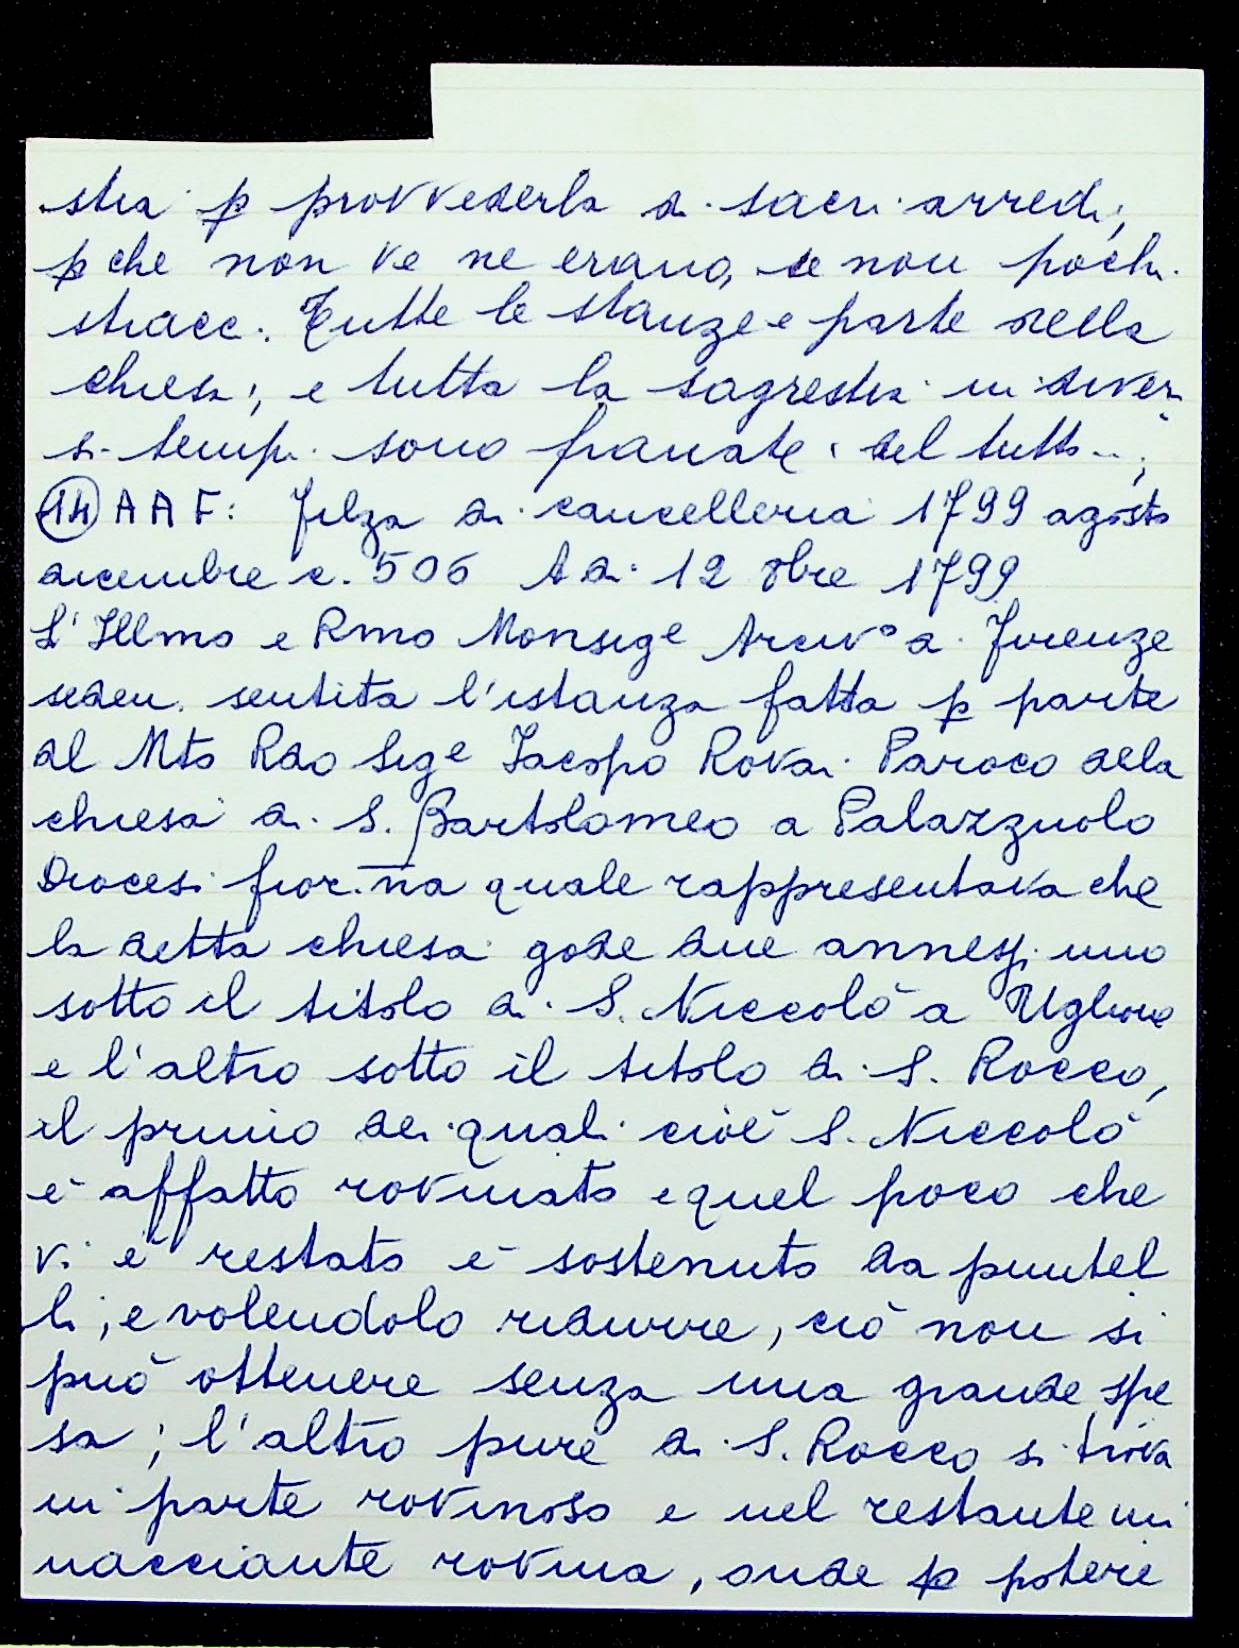 stia ꝑ provvederla di sacri arredi,
ꝑche non ve ne erano, se non pochi
stracci. Tutte le stanze e parte della
chiesa, e tutta la sagrestia in diver
si tempi sono franate del tutto...
(14) A A F: Filza di cancelleria 1799 agosto
dicembre c. 506 A di 12 8bre 1799
L'Illmo e Rmo Monsige Arcivº di Firenze
seden. sentita l'istanza fatta ꝑ parte
del Mto Rdo Sige Jacopo Rovai Paroco della
chiesa di S. Bartolomeo a Palazzuolo
Diocesi fior.na quale rappresentava che
la detta chiesa gode due annessi uno
sotto il titolo di S. Niccolò a Uglione
e l'altro sotto il titolo di S. Rocco,
il primo dei quali cioè S. Niccolò
è affatto rovinato e quel poco che
vi è restato è sostenuto da puntel
li, e volendolo ridurre, ciò non si
può ottenere senza una grande spe
sa; l'altro pure di S. Rocco si trova
in parte rovinoso e nel restante mi
nacciante rovina, onde ꝑ potere